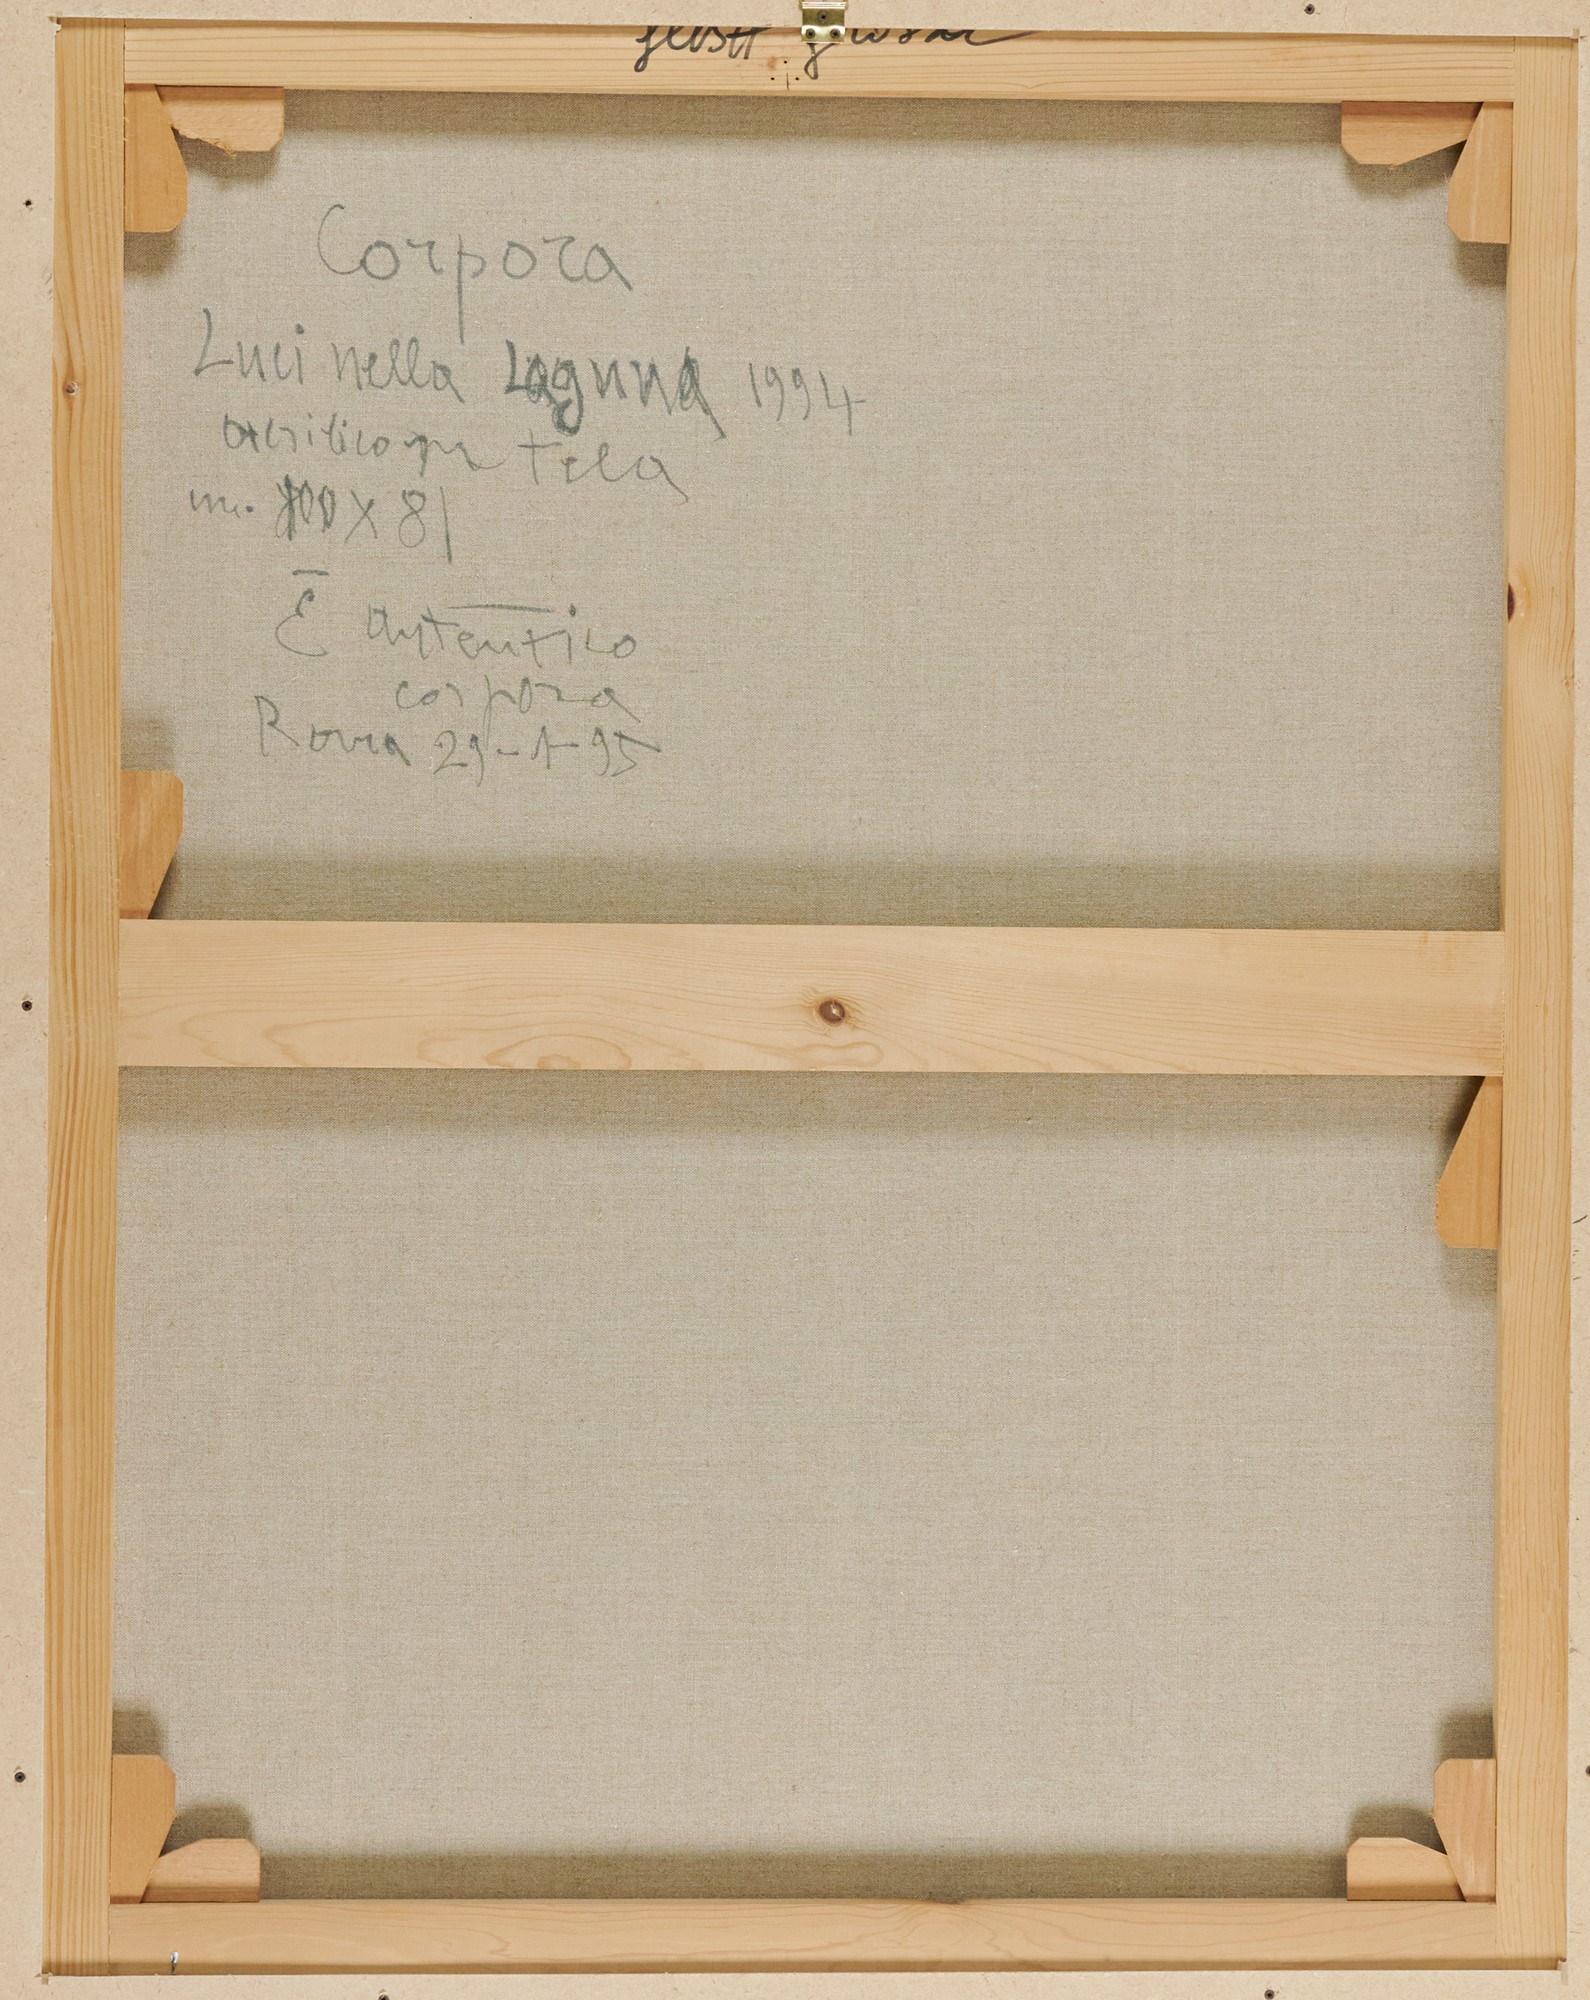 Corpora
Luci nella Laguna 1994
acrilico su tela
100 x 81
È autentico
corpora
Roma 29-1-95